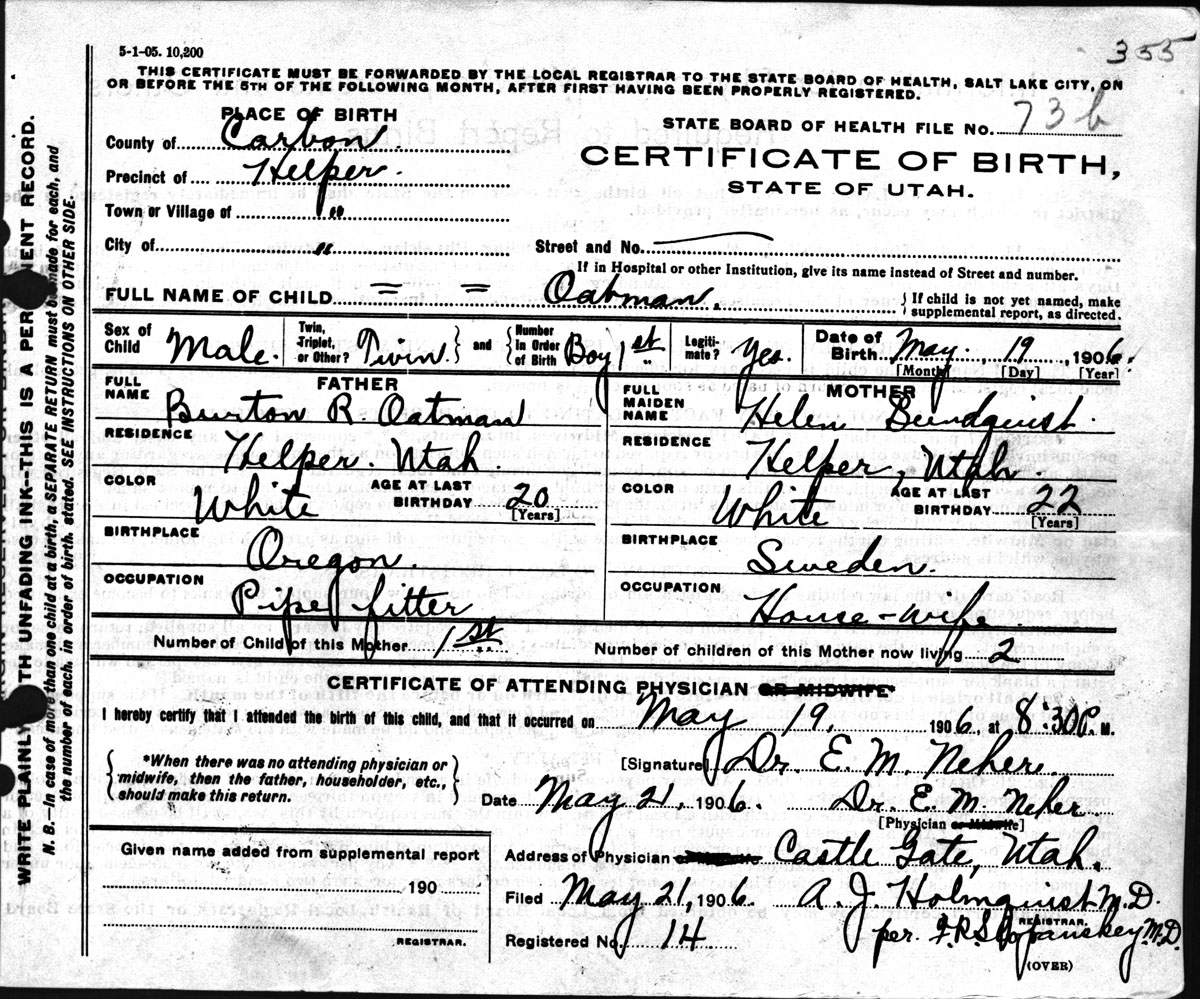 355
5-1-05. 10,200
THIS CERTIFICATE MUST BE FORWARDED BY THE LOCAL REGISTRAR TO THE STATE BOARD OF HEALTH, SALT LAKE CITY, ON
OR BEFORE THE 5TH OF THE FOLLOWING MONTH, AFTER FIRST HAVING BEEN PROPERLY REGISTERED.
PLACE OF BIRTH
County of Carbon.
Precinct of Helper.
Town or Village of "
City of "
STATE BOARD OF HEALTH FILE NO. 73b
CERTIFICATE OF BIRTH,
STATE OF UTAH.
Street and No.
If in Hospital or other Institution, give its name instead of Street and number.
FULL NAME OF CHILD = = Oatman. { If child is not yet named, make
supplemental report, as directed.
Sex of Child Male. Twin, Triplet, or Other? Twin } and { Number in Order of Birth Boy 1st " Legiti-mate? Yes. Date of Birth May, 19, 1906.
[Month] [Day] [Year]
FATHER
FULL NAME Burton R Oatman
RESIDENCE Helper. Utah.
COLOR White AGE AT LAST BIRTHDAY 20 [Years]
BIRTHPLACE Oregon.
OCCUPATION Pipe fitter
MOTHER
FULL MAIDEN NAME Helen Sundquist.
RESIDENCE Helper, Utah
COLOR White AGE AT LAST BIRTHDAY 22 [Years]
BIRTHPLACE Sweden.
OCCUPATION House-wife
Number of Child of this Mother 1st
Number of children of this Mother now living 2
CERTIFICATE OF ATTENDING PHYSICIAN OR MIDWIFE*
I hereby certify that I attended the birth of this child, and that it occurred on May 19, 1906, at 8:30 P. M.
{ *When there was no attending physician or
midwife, then the father, householder, etc.,
should make this return. }
[Signature] Dr. E. M. Neher.
Date May 21, 1906. Dr. E. M. Neher
[Physician or Midwife]
Address of Physician or Midwife Castle Gate, Utah.
Given name added from supplemental report
190
REGISTRAR.
Filed May 21, 1906. A. J. Holmquist M.D.
REGISTRAR.
Registered No. 14 per. F.R.S. M.D.
(OVER)
WRITE PLAINLY WITH UNFADING INK—THIS IS A PERMANENT RECORD.
N. B.—In case of more than one child at a birth, a SEPARATE RETURN must be made for each, and
the number of each, in order of birth, stated. SEE INSTRUCTIONS ON OTHER SIDE.